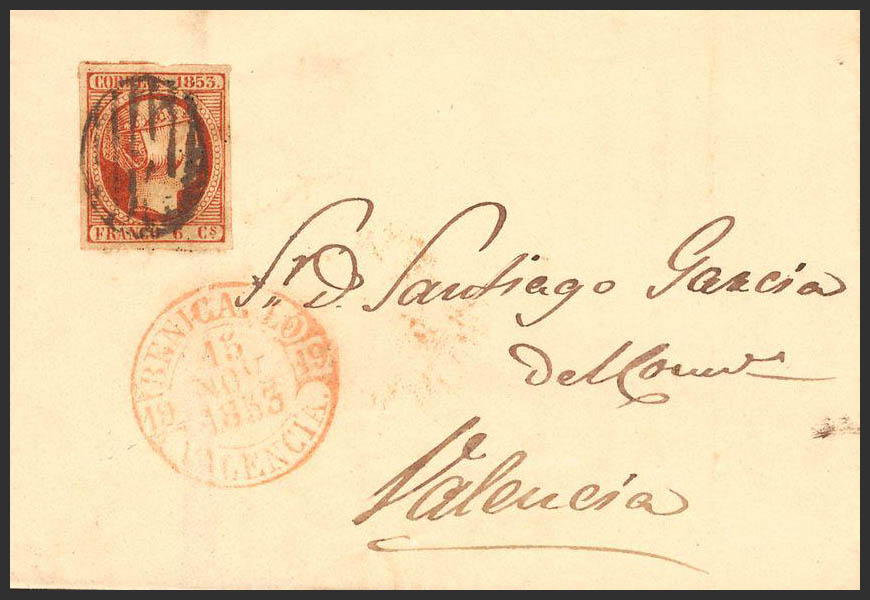 CORREOS 1853.
FRANCO 6. Cs
Sr. D. Santiago Garcia
del Comº
Valencia
BENICARLO
19 19
13
NOV
1853
VALENCIA.